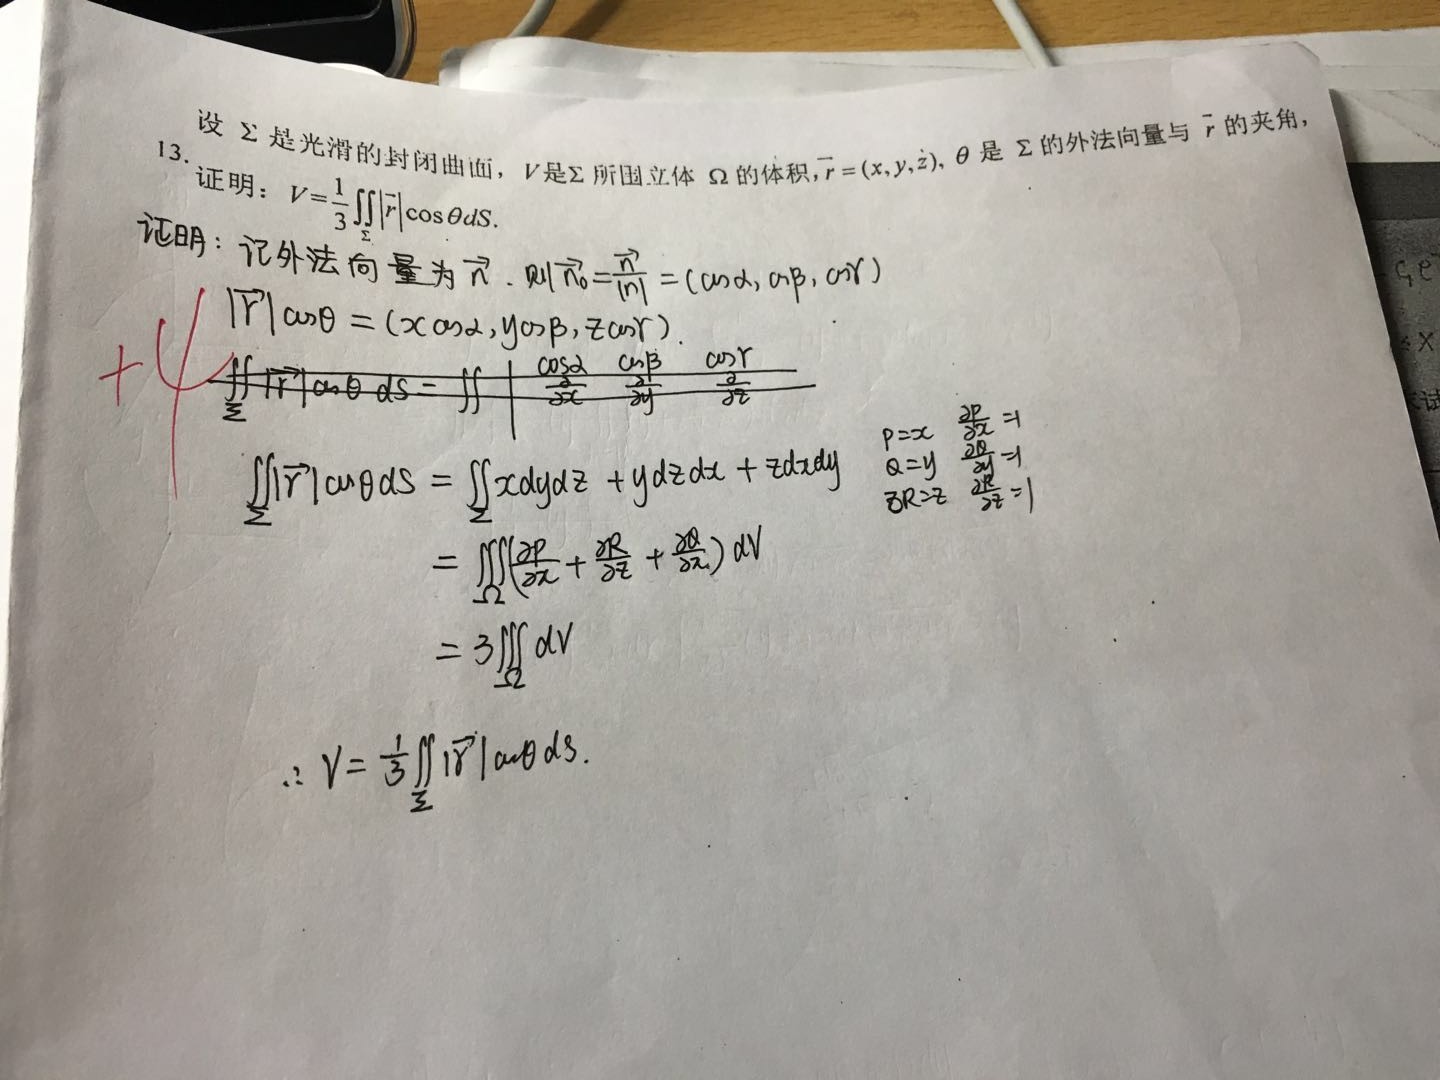 13. 设 Σ 是光滑的封闭曲面, V是Σ 所围立体 Ω 的体积, r⃗=(x,y,z), θ 是 Σ 的外法向量与 r⃗ 的夹角,
证明: V=1/3∬_Σ|r⃗|cosθdS.
证明: 记外法向量为 n⃗. 则 n⃗₀=n⃗/|n|=(cosα, cosβ, cosγ)
|r⃗|cosθ=(xcosα, ycosβ, zcosγ).
+4
∬_Σ|r⃗|cosθdS=∬| cosα cosβ cosγ
∂/∂x ∂/∂y ∂/∂z
∬_Σ|r⃗|cosθdS=∬_Σ xdydz+ydzdx+zdxdy
P=x ∂P/∂x=1
Q=y ∂Q/∂y=1
R=z ∂R/∂z=1
=∭_Ω(∂P/∂x+∂R/∂z+∂Q/∂x)dV
=3∭_Ω dV
∴V=1/3∬_Σ|r⃗|cosθdS.